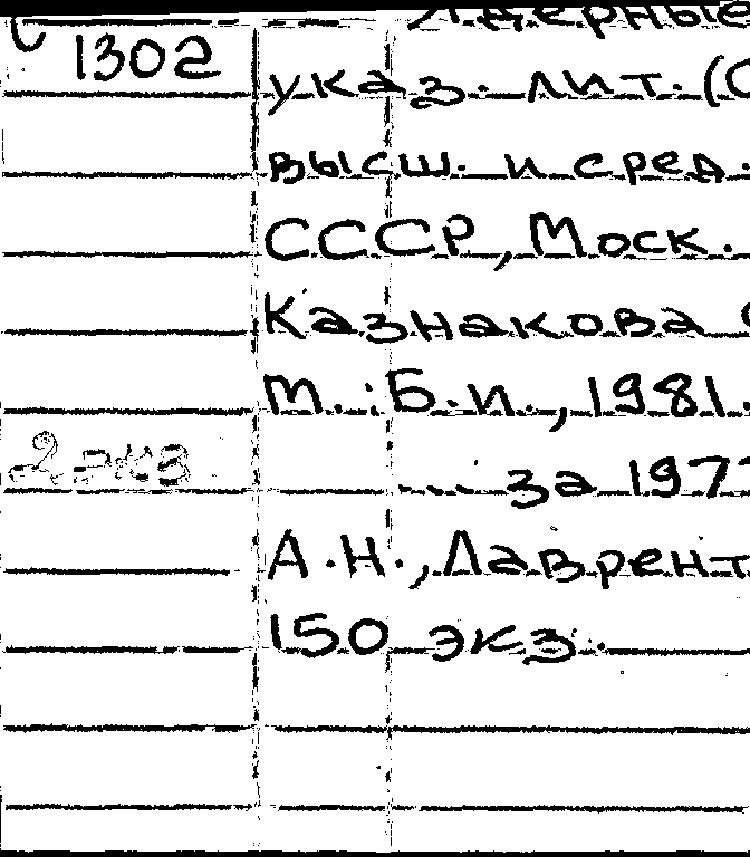 Ядерные
1302
указ. лит. (С
высш. и сред.
СССР, Моск.
Казнакова
М.: Б.и., 1981.
2 экз
... за 197
А.Н., Лаврент
150 экз.